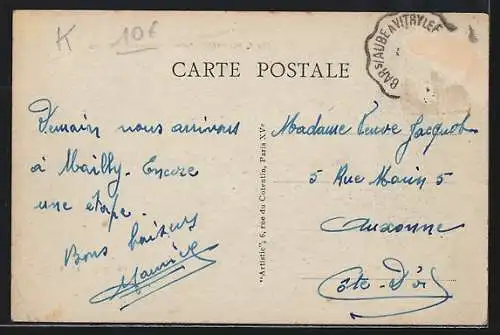 K 10€
BAR S/AUBE A VITRY LE F
CARTE POSTALE
Demain nous arrivons
à Mailly. Encore
une étape.
Bons baisers
Maurice
"Artistic", 6, rue du Cotentin, Paris XVe
Madame Veuve Jacquot
5 Rue Marin 5
Auxonne
Côte-d'Or